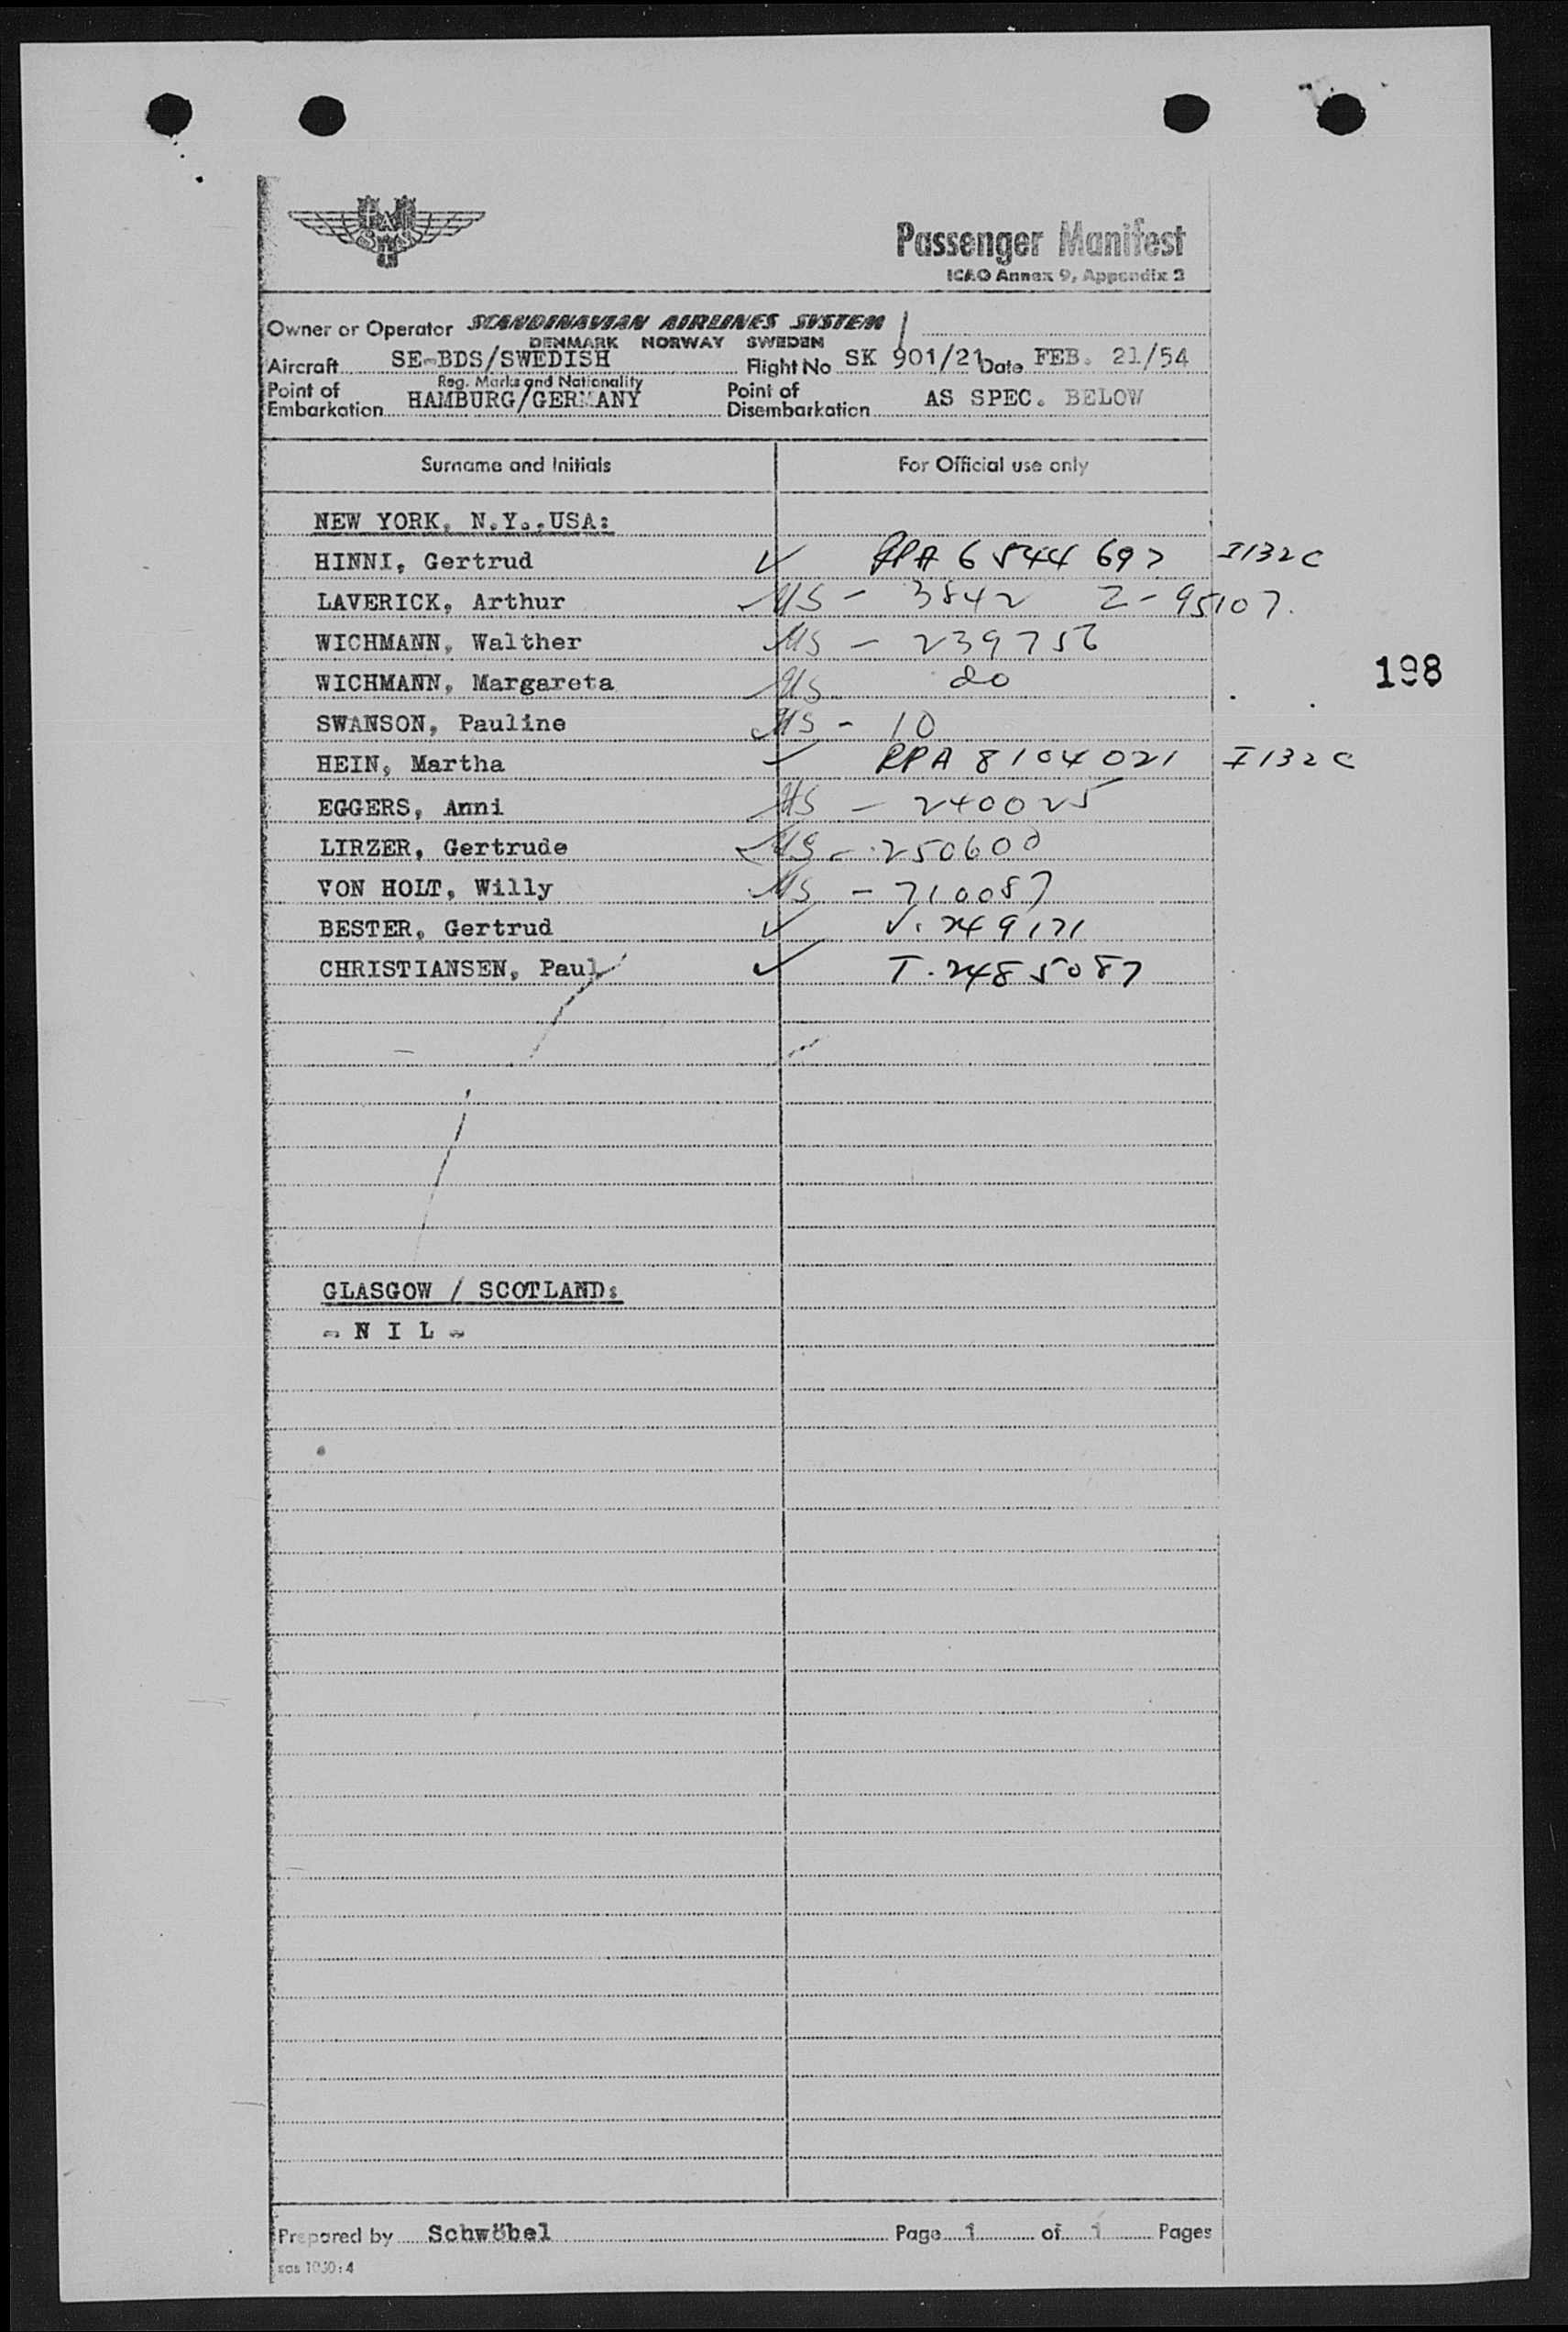 SAS
Passenger Manifest
ICAO Annex 9, Appendix 2
Owner or Operator SCANDINAVIAN AIRLINES SYSTEM
DENMARK NORWAY SWEDEN
Aircraft SE-BDS/SWEDISH Flight No SK 901/21 Date FEB. 21/54
Reg. Marks and Nationality
Point of Embarkation HAMBURG/GERMANY Point of Disembarkation AS SPEC. BELOW
Surname and Initials For Official use only
NEW YORK, N.Y., USA:
HINNI, Gertrud ✓ RPA 6544697 I132C
LAVERICK, Arthur US - 3842 Z-95107.
WICHMANN, Walther US - 239756
WICHMANN, Margareta US do
198
SWANSON, Pauline US - 10
HEIN, Martha ✓ RPA 8104021 I132C
EGGERS, Anni US - 240025
LIRZER, Gertrude US - 250600
VON HOLT, Willy US - 710087
BESTER, Gertrud ✓ V. 249171
CHRISTIANSEN, Paul ✓ T. 2485087
GLASGOW / SCOTLAND:
- N I L -
Prepared by Schwöbel Page 1 of 1 Pages
sas 1030:4